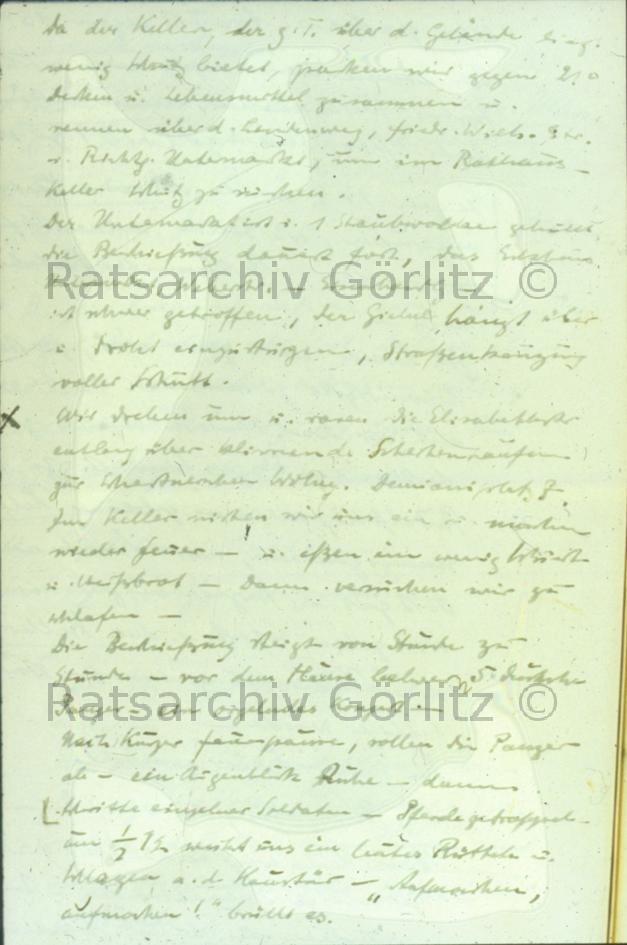 Da der Keller, der z. T. über d. Gelände liegt
wenig Schutz bietet, packen wir gegen 2
Decken u. Lebensmittel zusammen u.
rennen über d. , Friedr. Wilh. Str.
i. Richtg. Untermarkt, um im Rathaus-
keller Schutz zu suchen.
Der Untermarkt ist i. 1 Staubwolke gehüllt
die Beschießung dauert fort, das
Ratsarchiv Görlitz ©
ist schwer getroffen, der Giebel hängt über
u. droht einzustürzen, Straßenkreuzung
voller Schutt.
x Wir drehen um u. rasen die Elisabethstr
entlang über klirrende Scherbenhaufen
zur Wohng. Demianiplatz 7.
Im Keller richten wir uns ein u. machen
wieder Feuer – u. eßen ein wenig Wurst
u. Weißbrot – dann versuchen wir zu
schlafen –
Die Beschießung steigt von Stunde zu
Stunde – vor dem Hause 5 deutsche
Panzer – ein
Ratsarchiv Görlitz ©
Nach kurzer Feuerpause, rollen die Panzer
ab – ein Augenblick Ruhe – dann
Schritte einzelner Soldaten – Pferdegetrappel –
um ½ weckt uns ein lautes Rütteln u.
Schlagen a. d. Haustür – „Aufmachen,
aufmachen!“ brüllt es.